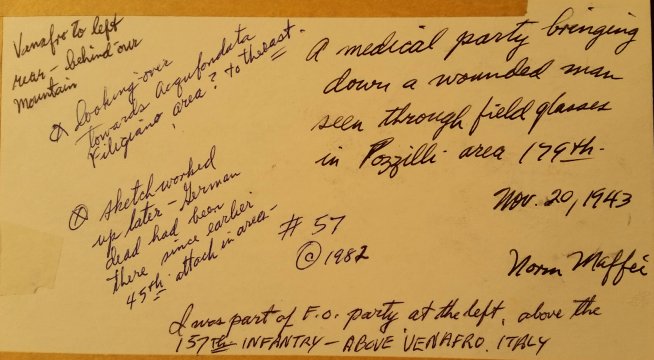 Venafro to left
rear - behind our
Mountain
Ⓧ Looking over
towards Acqufondata
Filigiano area? to the east.
Ⓧ Sketch worked
up later - German
dead had been
there since earlier
45th attack in area -
A medical party bringing
down a wounded man
seen through field glasses
in Pozzilli area 179th.
Nov. 20, 1943
# 57
© 1982
Norm Maffei
I was part of F.O. party at the left, above the
157th INFANTRY - ABOVE VENAFRO, ITALY